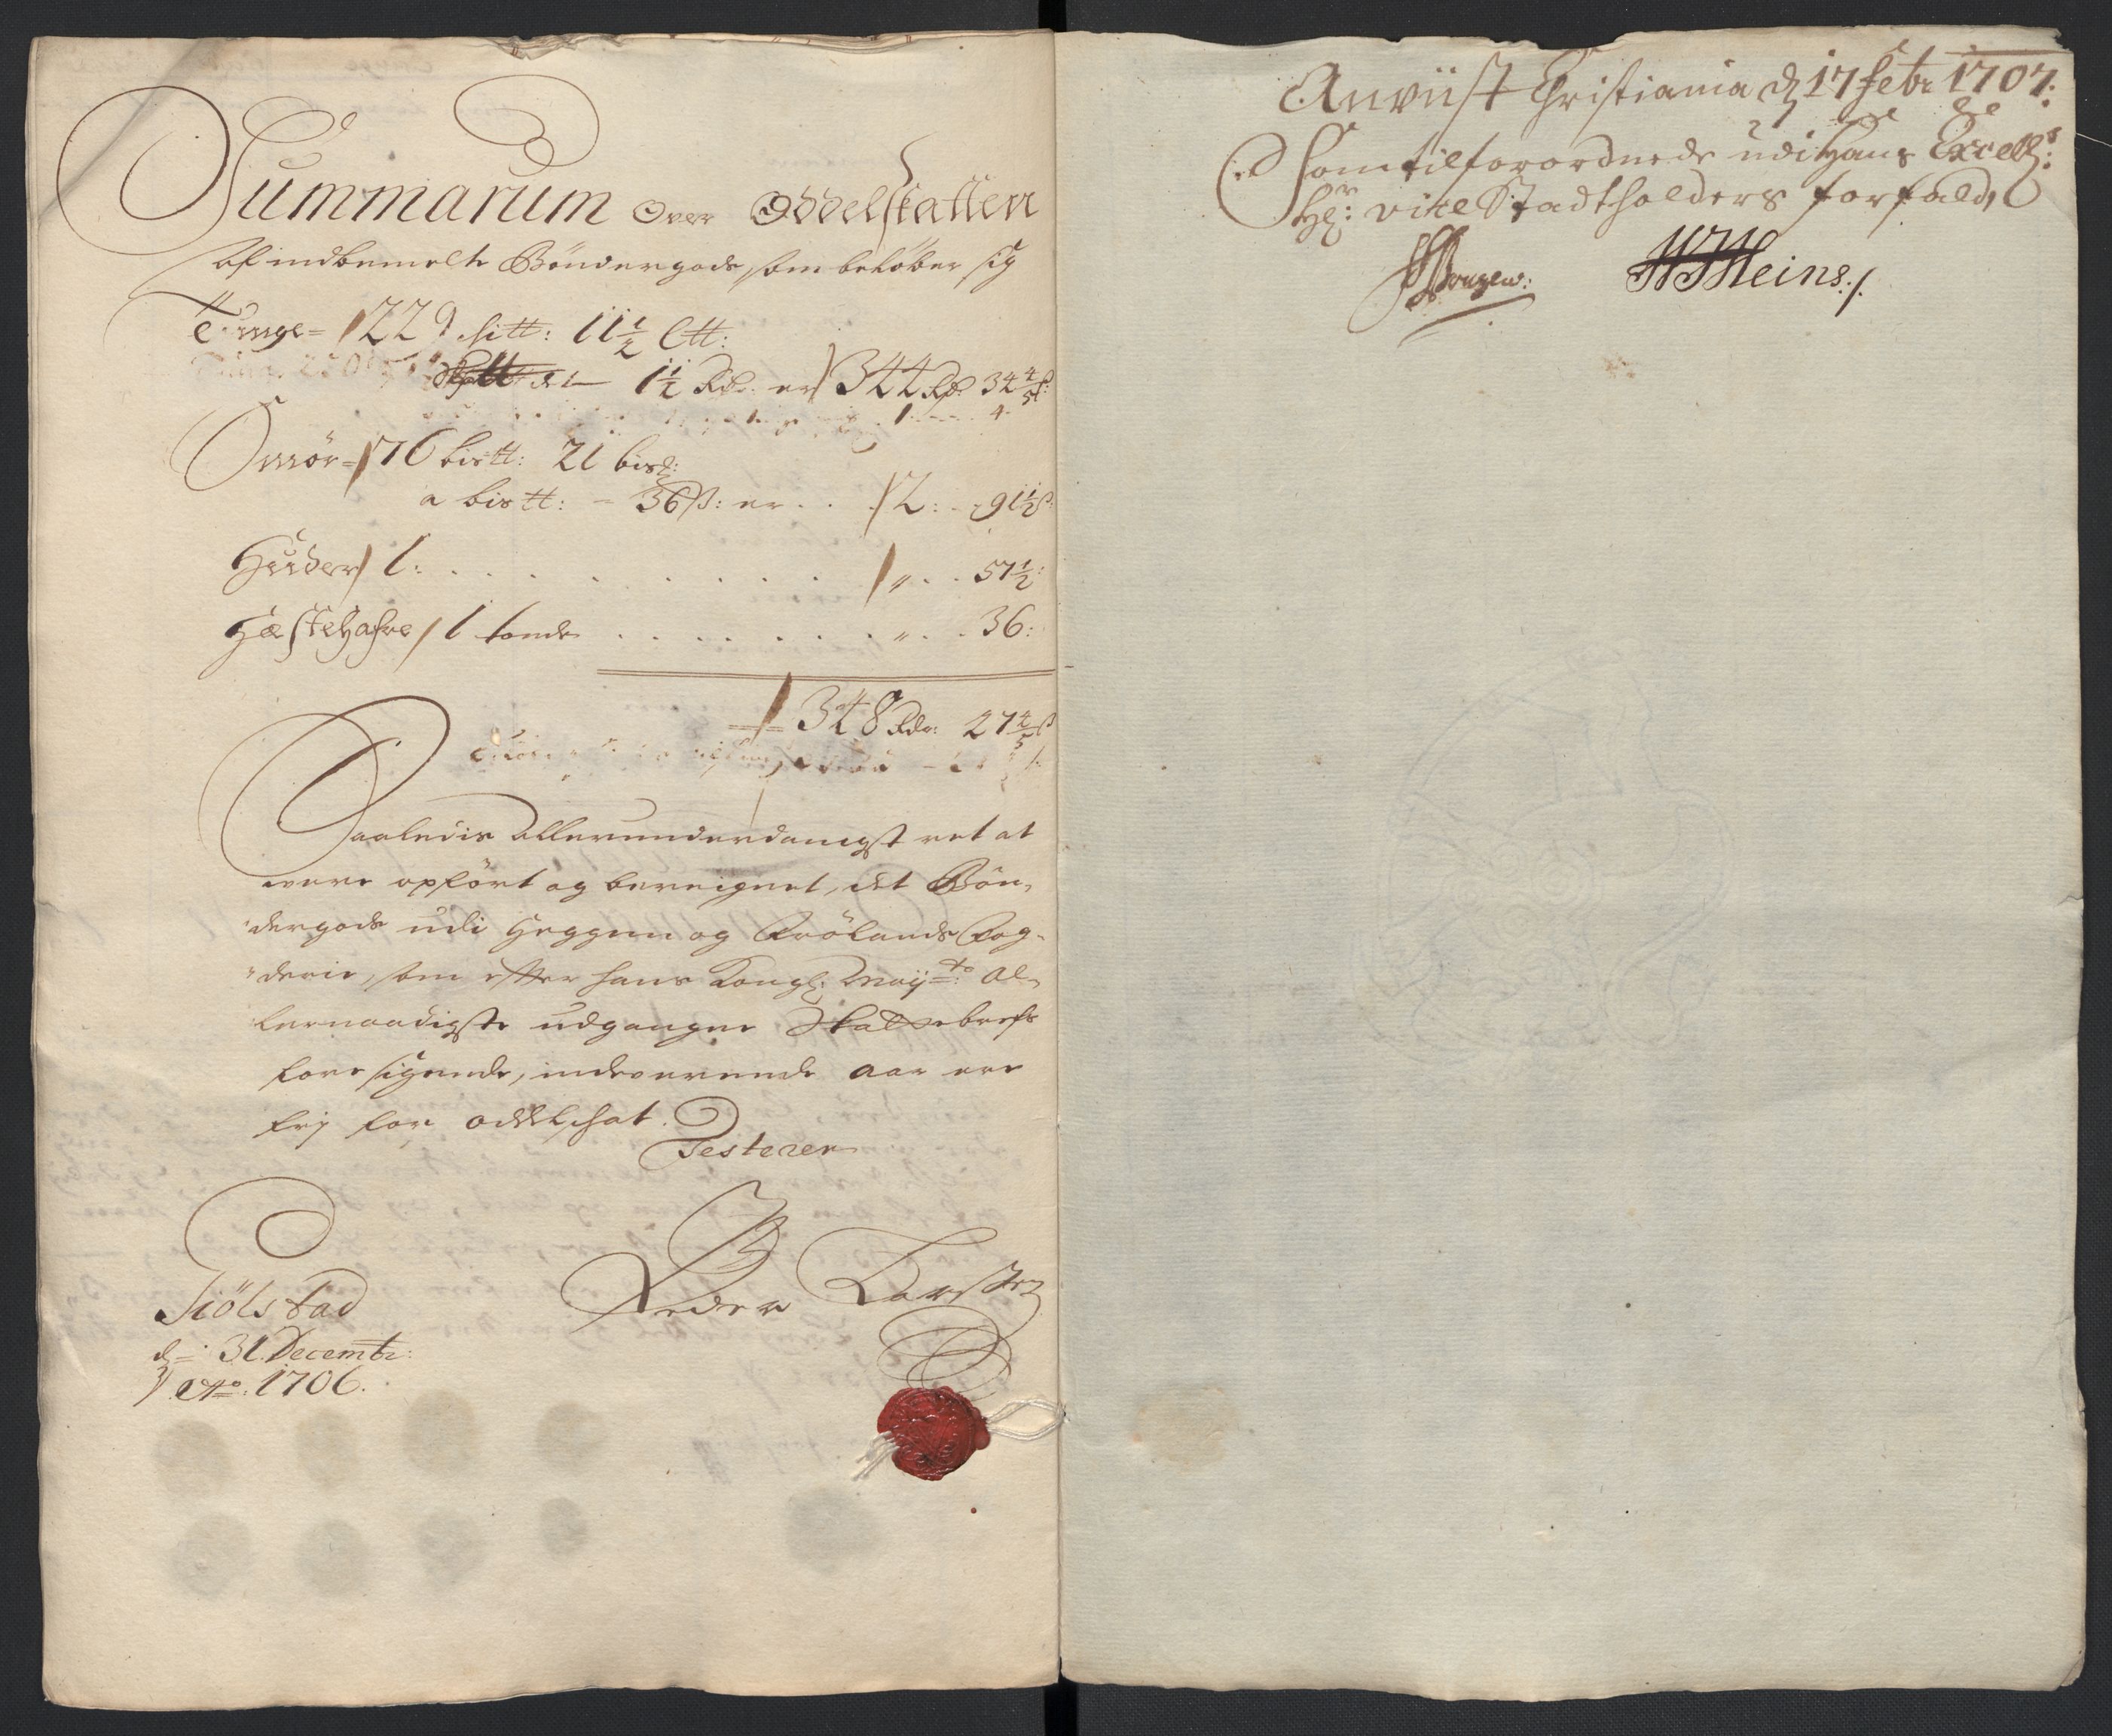 Summarum Over Oddelskatten
Af indbemelte Bøndergods, som beløber sig
Tunge = 229 skitt: 11½ Ltt:
1½ Rdr. er 344 Rdr 34⅘ s:
Smør = 76 bistt: 21 bis:
a bistt: = 36 s: er . . 2: . 91½ s:
Huder 1: . . . „ . . 57½:
Hæstehafre 1 tønde . . . „ . . 36:
348 Rdr: 27⅘ s
Saaledis allerunderdanigst ret at
vere opført og bereignet, det Bøn-
dergods udi Heggen og Frølands Fog-
derie, som efter hans Kongl: Mayts: Al-
lernaadigste udgangne Skattebrefs
foresigende, indeverende aar ere
frj for oddelskat.
Testerer
Peder Larsen
Siølstad
d: 31. Decembr:
Ao: 1706.
Anviist Christiania d 17 Febr 1707:
Som tilforordnede udi Hans Excell:
Hr: vice Stadtholders forfald,